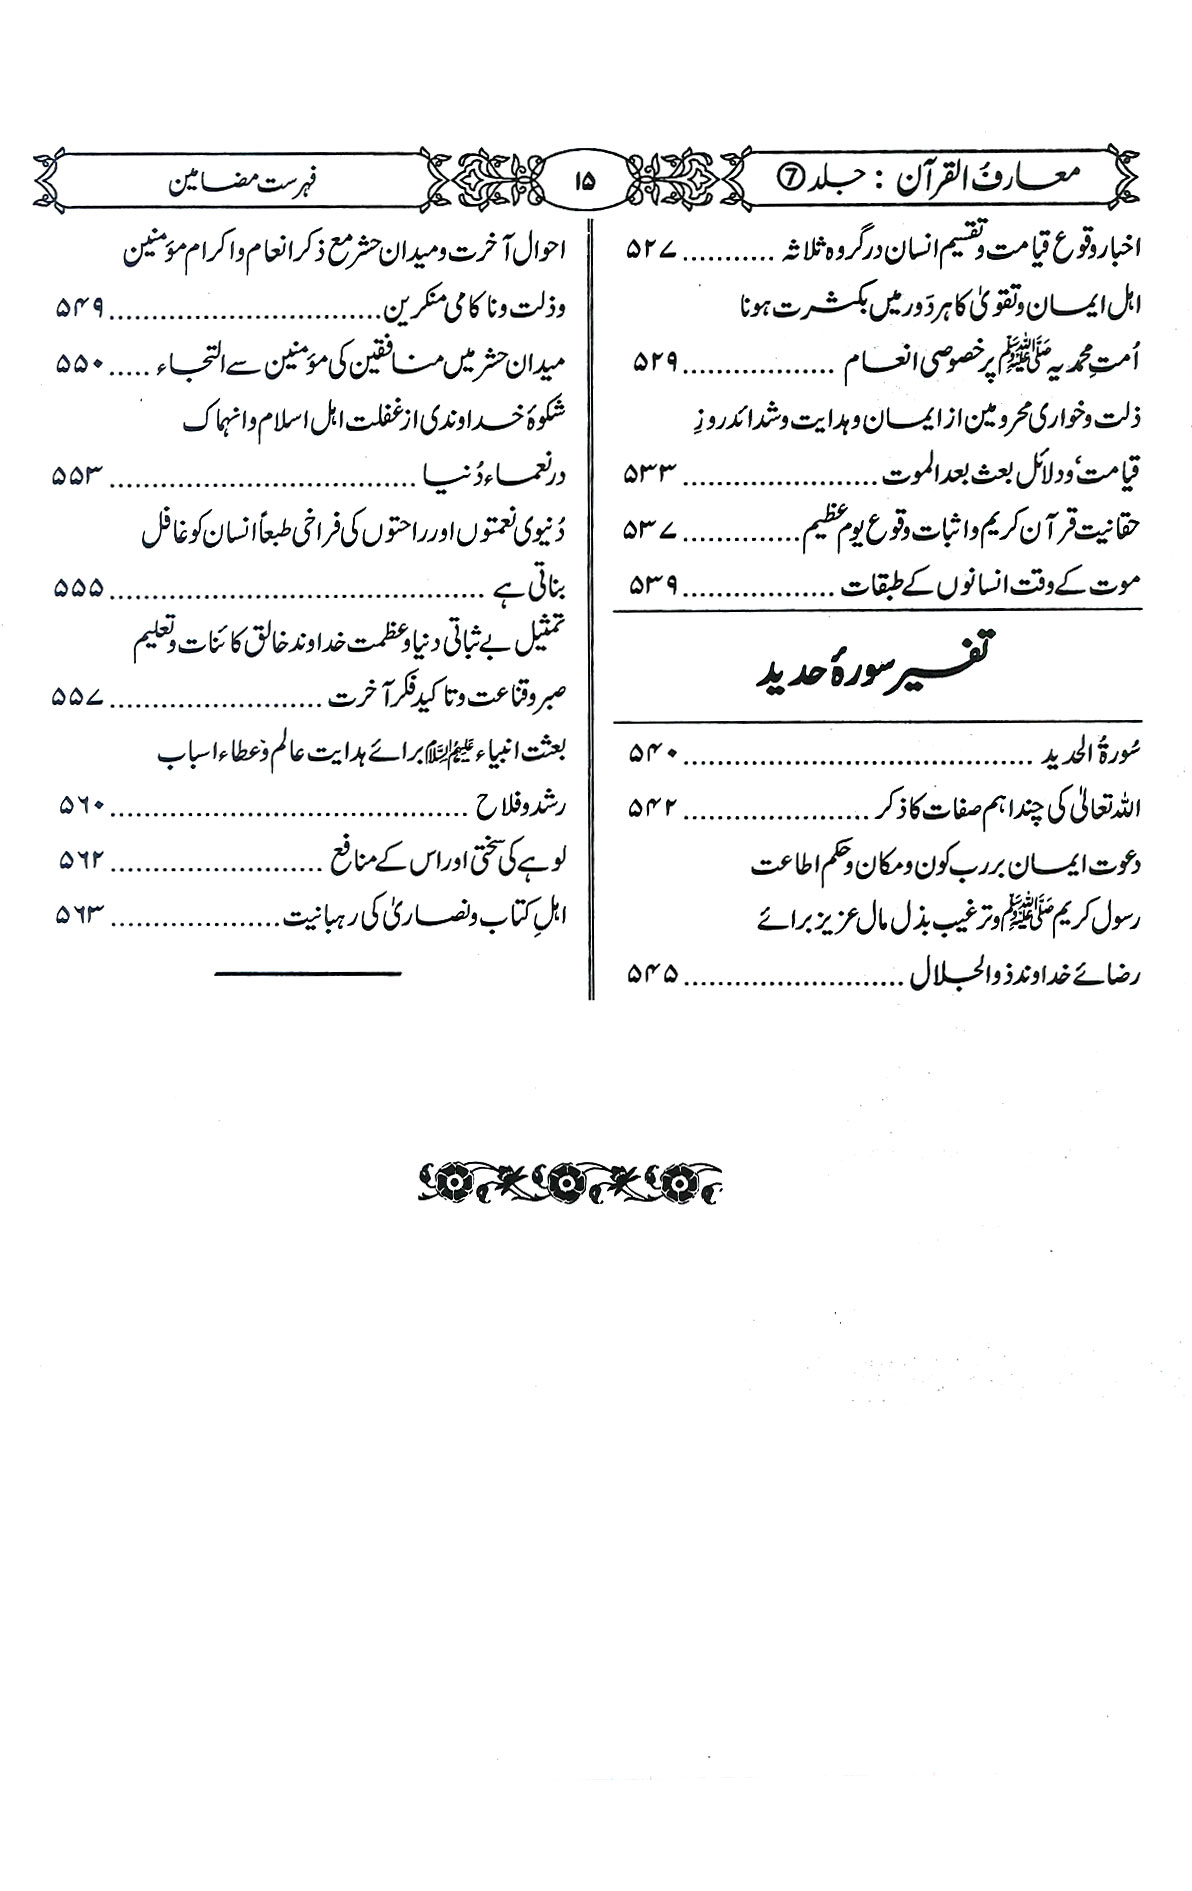 معارفُ القرآن : جلد ⑦
۱۵
فہرست مضامین
اخبار وقوع قیامت و تقسیم انسان در گروہ ثلاثہ ........... ۵۲۷
اہل ایمان و تقویٰ کا ہر دَور میں بکثرت ہونا
اُمتِ محمدیہ ﷺ پر خصوصی انعام .................. ۵۲۹
ذلت و خواری محرومین از ایمان و ہدایت و شدائد روزِ
قیامت، و دلائل بعث بعد الموت ....................... ۵۳۳
حقانیت قرآن کریم و اثبات وقوع یوم عظیم .............. ۵۳۷
موت کے وقت انسانوں کے طبقات .................. ۵۳۹
تفسیر سورۂ حدید
سُورۃُ الحدید .......................................... ۵۴۰
اللہ تعالیٰ کی چند اہم صفات کا ذکر ...................... ۵۴۲
دعوت ایمان بر رب کون و مکان و حکم اطاعت
رسول کریم ﷺ و ترغیب بذل مال عزیز برائے
رضائے خداوند ذوالجلال .......................... ۵۴۵
احوال آخرت و میدان حشر مع ذکر انعام و اکرام مؤمنین
و ذلت و ناکامی منکرین ................................ ۵۴۹
میدان حشر میں منافقین کی مؤمنین سے التجاء ..... ۵۵۰
شکوۂ خداوندی از غفلت اہل اسلام و انہماک
در نعماء دُنیا .................................... ۵۵۳
دُنیوی نعمتوں اور راحتوں کی فراخی طبعاً انسان کو غافل
بناتی ہے ............................................ ۵۵۵
تمثیل بے ثباتی دنیا و عظمت خداوند خالق کائنات و تعلیم
صبر و قناعت و تاکید فکر آخرت ......................... ۵۵۷
بعثت انبیاء علیہم السلام برائے ہدایت عالم و عطاء اسباب
رشد و فلاح .......................................... ۵۶۰
لوہے کی سختی اور اس کے منافع ......................... ۵۶۲
اہلِ کتاب و نصاریٰ کی رہبانیت .................... ۵۶۳